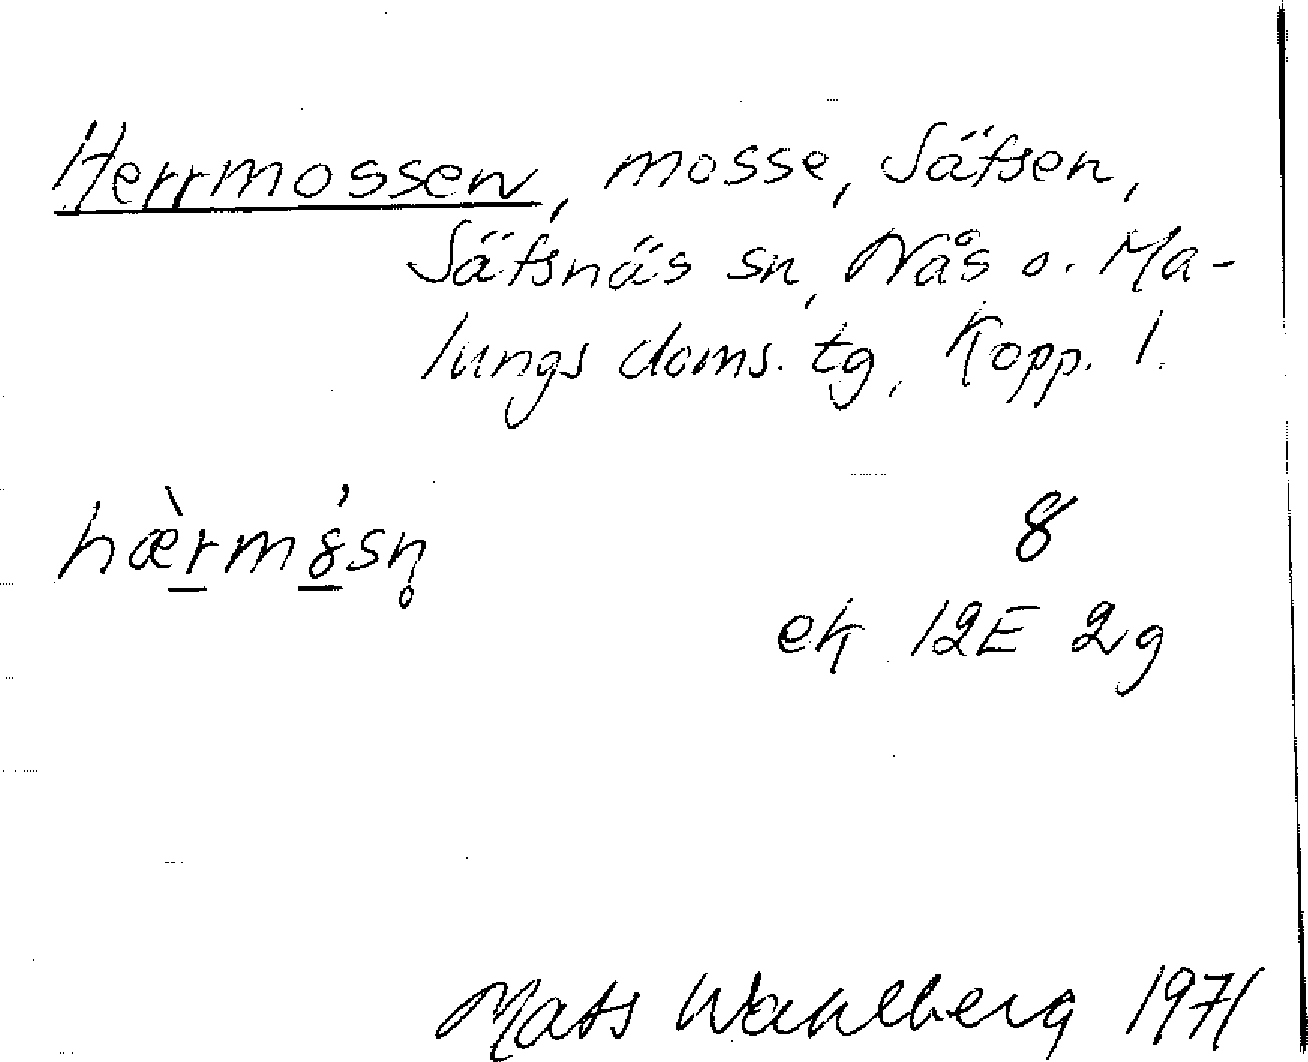 Herrmossen, mosse, Säfsen,
Säfsnäs sn, Nås o. Ma-
lungs doms. tg, Kopp. l.
hæ̀r̲m8̲́sn̥
8
ek 12E 2g
Mats Wahlberg 1971